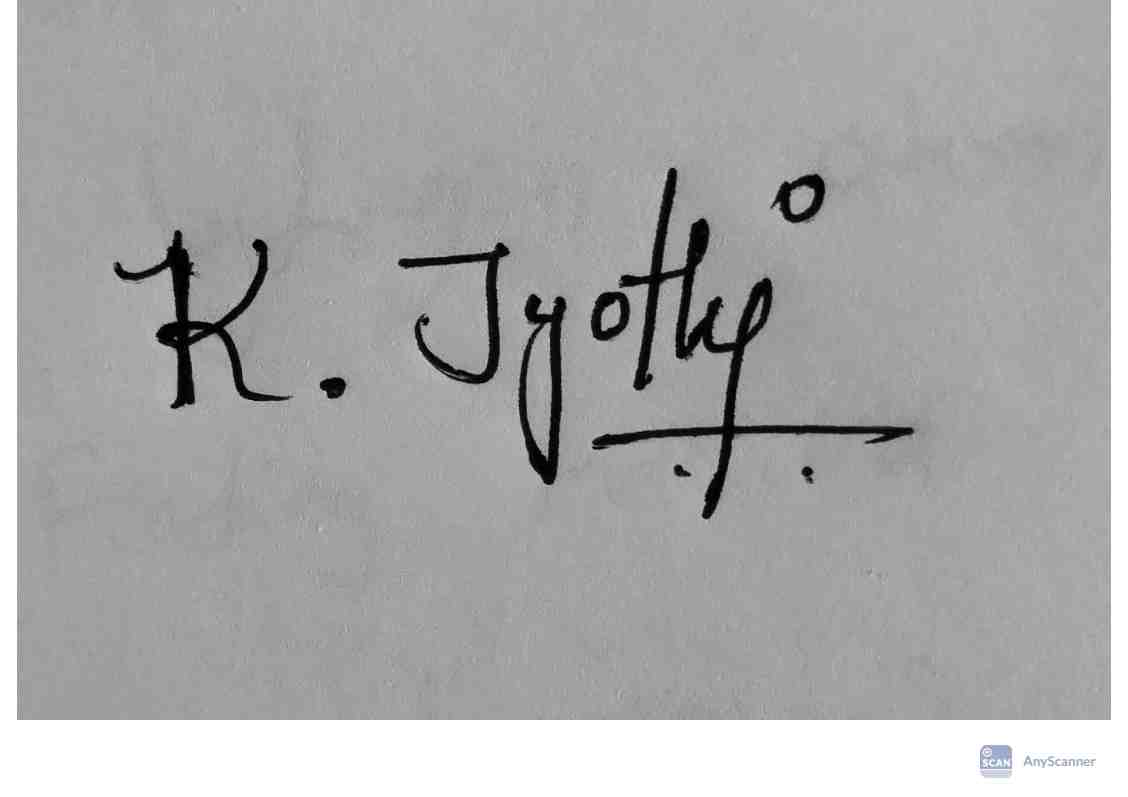 K. Jyothi
SCAN AnyScanner